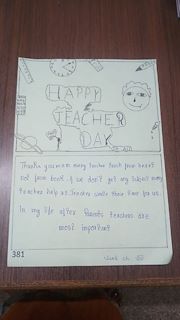 HAPPY
TEACHER
DAY
Thank you mam many teacher teach from heart
not from book. If we don't get any subject many
teacher help us. Teacher smile their time for us.
In my life after Parents teachers are
most important
381